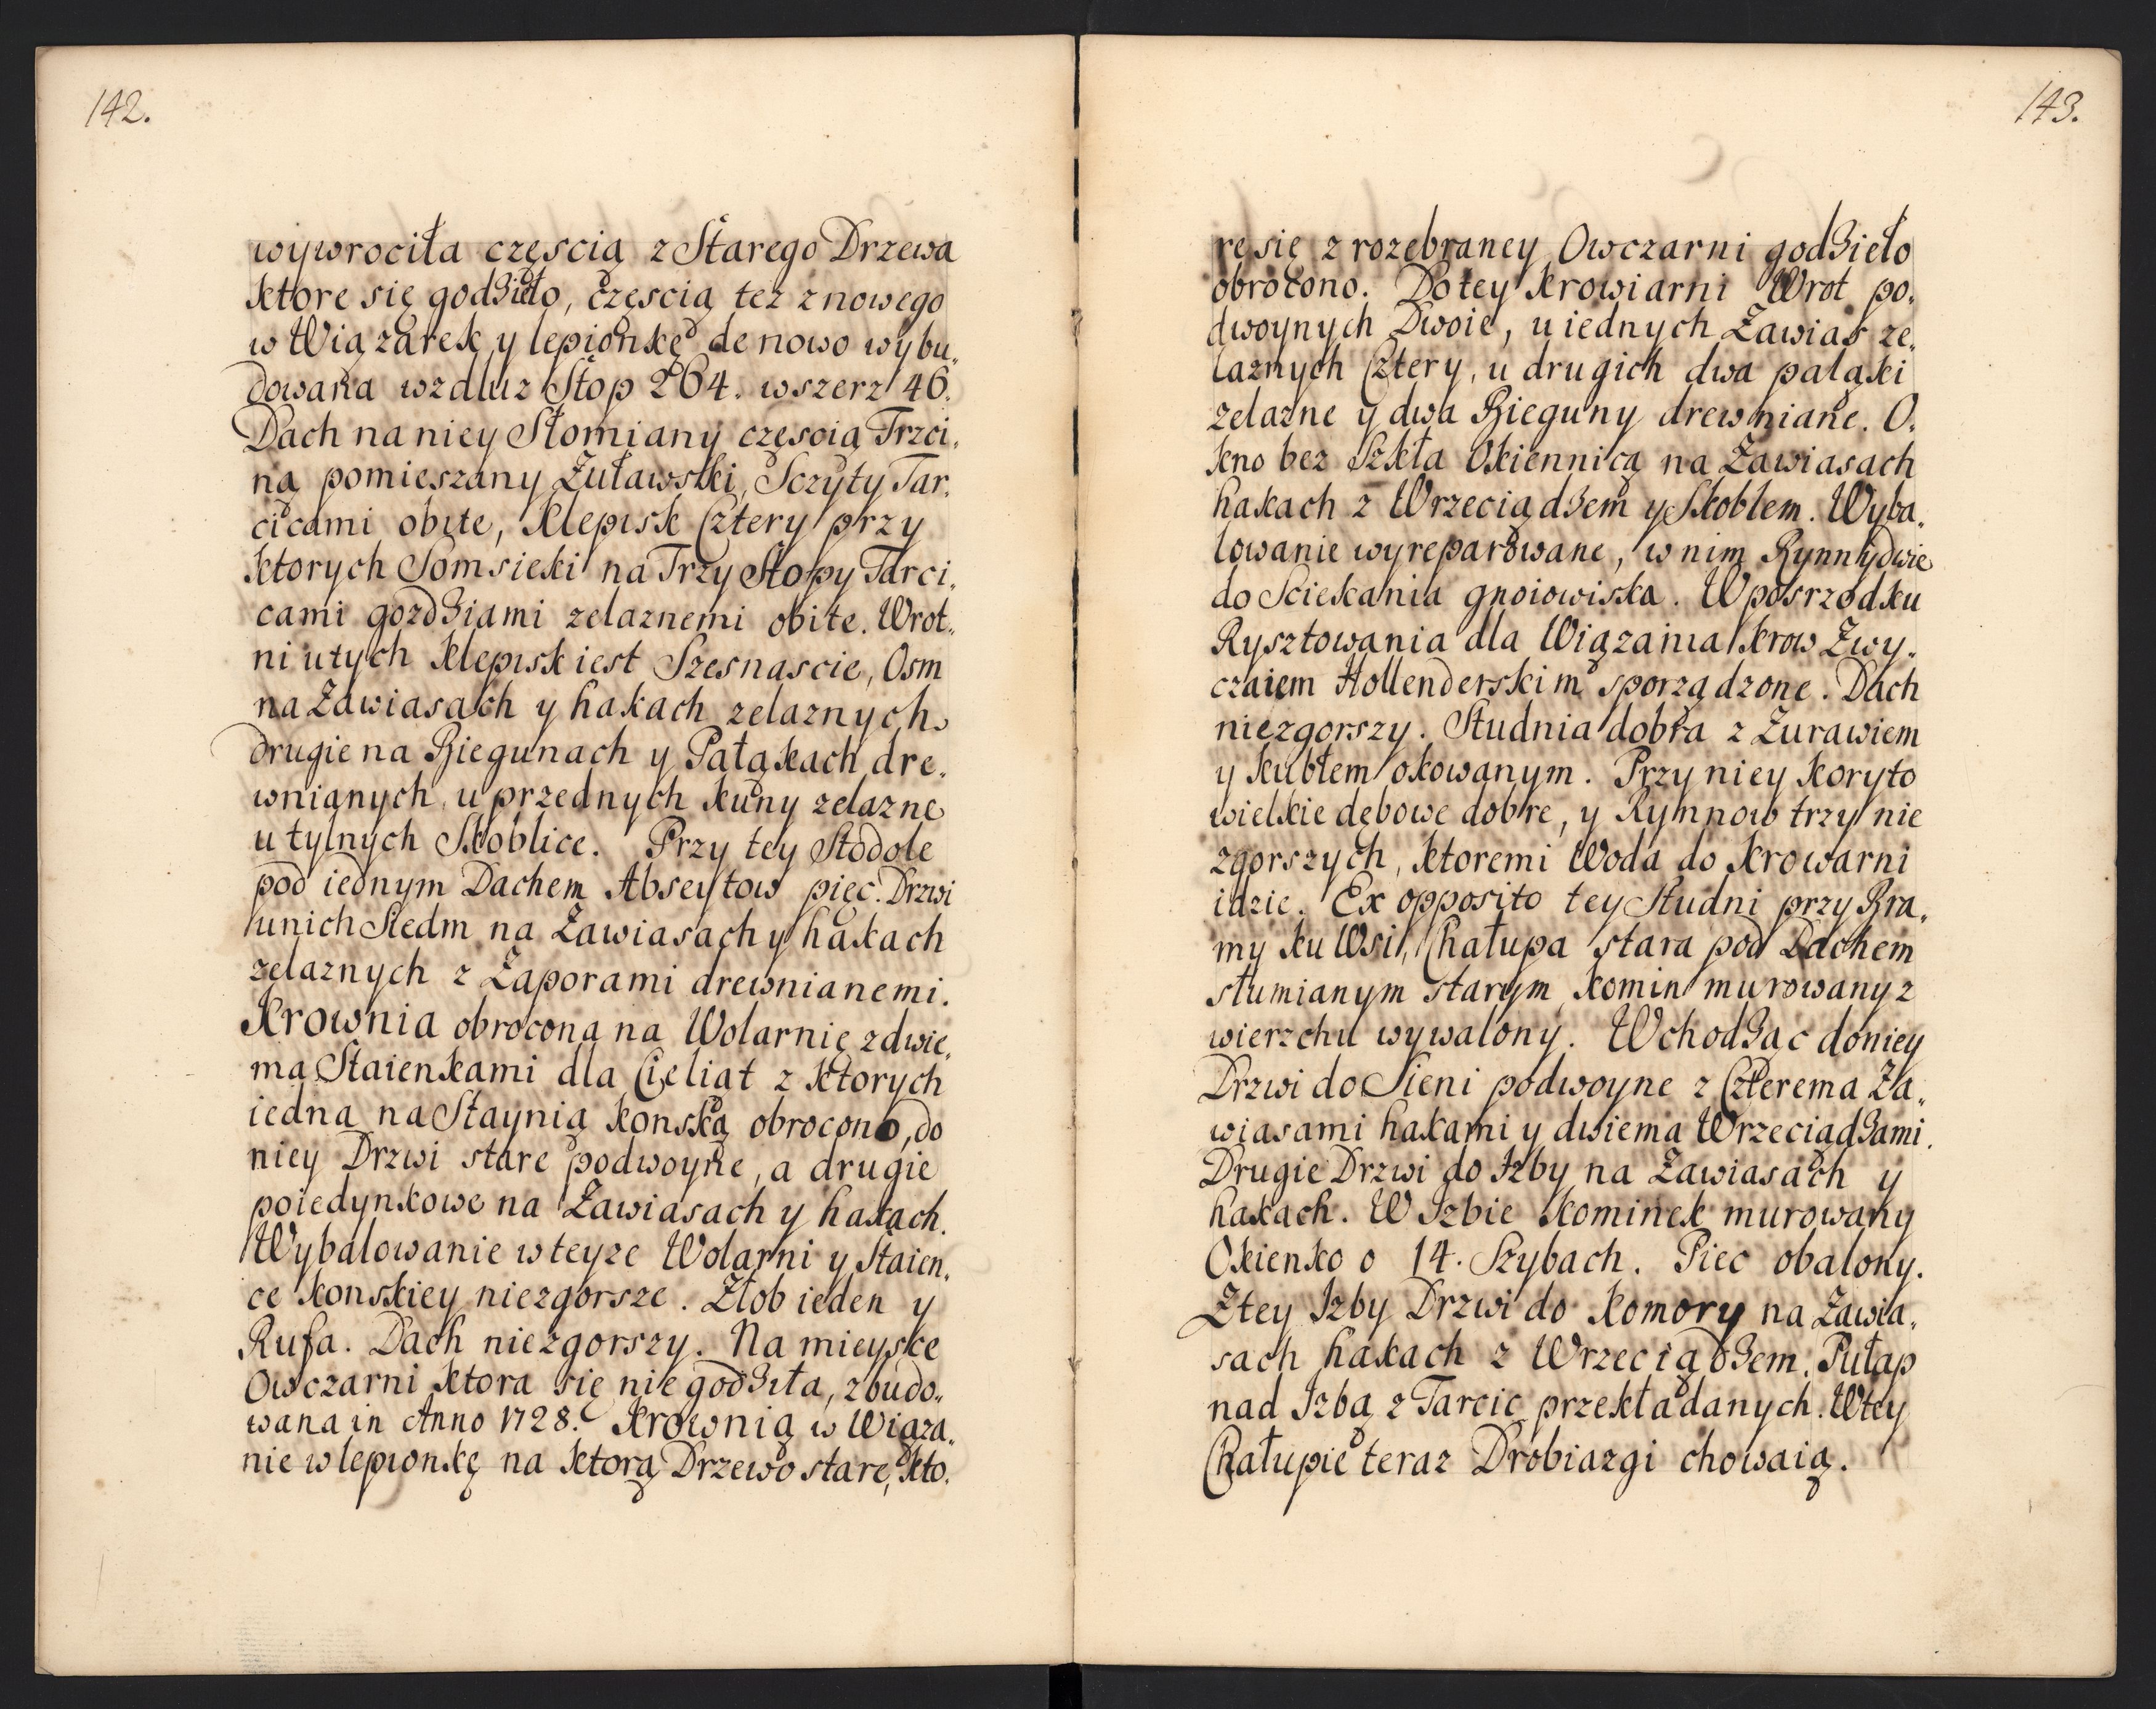 142.
wywrociła częscią z Starego Drzewa
ktore się godziło, częscią tez z nowego
w Wiązarek y lepionkę de novo wybu„
dowana wzdluz Stop 264. wszerz 46.
Dach na niey Słomiany częscią Trzci„
ną pomieszany Zuławski, Sczyty Tar„
cicami obite, Klepisk Cztery przy
ktorych Somsieki na Trzy Stopy Tarci„
cami gozdziami zelaznemi obite. Wrot„
ni u tych Klepisk iest Szesnascie, Osm
na Zawiasach y hakach zelaznych,
drugie na Biegunach y Pałąkach dre„
wnianych, u przednych kuny zelazne
u tylnych Skoblice. Przy tey Stodole
pod iednym Dachem Abseytow pięc. Drzwi
u nich Siedm na Zawiasach y hakach
zelaznych z Zaporami drewnianemi.
Krownia obrocona na Wolarnię z dwie„
ma Staienkami dla Cieliat z ktorych
iedna na Staynią konską obrocono, do
niey Drzwi stare podwoyne, a drugie
poiedynkowe na Zawiasach y hakach.
Wybalowanie w teyze Wolarni y Staien„
ce konskiey niezgorsze. Złob ieden y
Rufa. Dach niezgorszy. Na mieysce
Owczarni ktora się nie godziła, zbudo„
wana in Anno 1728. Krownia w Wiąza„
nie w lepionkę na ktorą Drzewo stare, kto„
143.
re się z rozebraney Owczarni godzieło
obrocono. Do tey krowiarni Wrot po„
dwoynych Dwoie, u iednych Zawias ze„
laznych Cztery, u drugich dwa pałąki
zelazne y dwa Bieguny drewniane. O„
kno bez Szkła Okiennicą na Zawiasach
hakach z Wrzeciądzem y Skoblem. Wyba„
lowanie wyreparowane, w nim Rynny dwie
do Sciekania gnoiowiska. W posrzodku
Rysztowania dla Wiązania krow Zwy„
czaiem Hollenderskim sporządzone. Dach
niezgorszy. Studnia dobra z Zurawiem
y kubłem okowanym. Przy niey koryto
wielkie dębowe dobre, y Rymnow trzy nie
zgorszych, ktoremi Woda do krowarni
idzie. Ex opposito tey Studni przy Bra„
my ku Wsi, Chałupa stara pod Dachem
słumianym starym komin murowany z
wierzchu wywalony. Wchodząc do niey
Drzwi do Sieni podwoyne z Czterema Za„
wiasami hakami y dwiema Wrzeciądzami.
Drugie Drzwi do Izby na Zawiasach y
hakach. W Izbie kominek murowany
Okienko o 14. Szybach. Piec obalony.
Z tey Izby Drzwi do komory na Zawia„
sach hakach z Wrzeciądzem. Pułap
nad Izbą z Tarcic przekładanych. W tey
Chałupie teraz Drobiazgi chowaią.